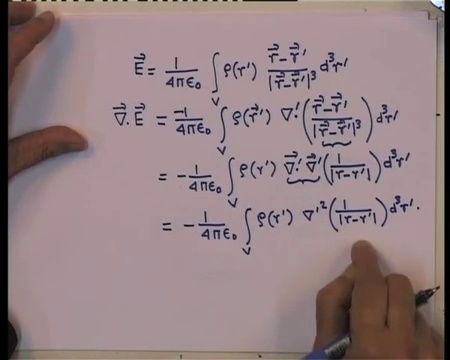 E⃗ = 1/4πε₀ ∫_V ρ(r') (r⃗-r⃗')/|r⃗-r⃗'|³ d³r'
∇⃗·E⃗ = -1/4πε₀ ∫_V ρ(r⃗') ∇'·((r⃗-r⃗')/|r⃗-r⃗'|³) d³r'
= -1/4πε₀ ∫_V ρ(r') ∇⃗'·∇⃗'(1/|r-r'|) d³r'
= -1/4πε₀ ∫_V ρ(r') ∇'²(1/|r-r'|) d³r'.